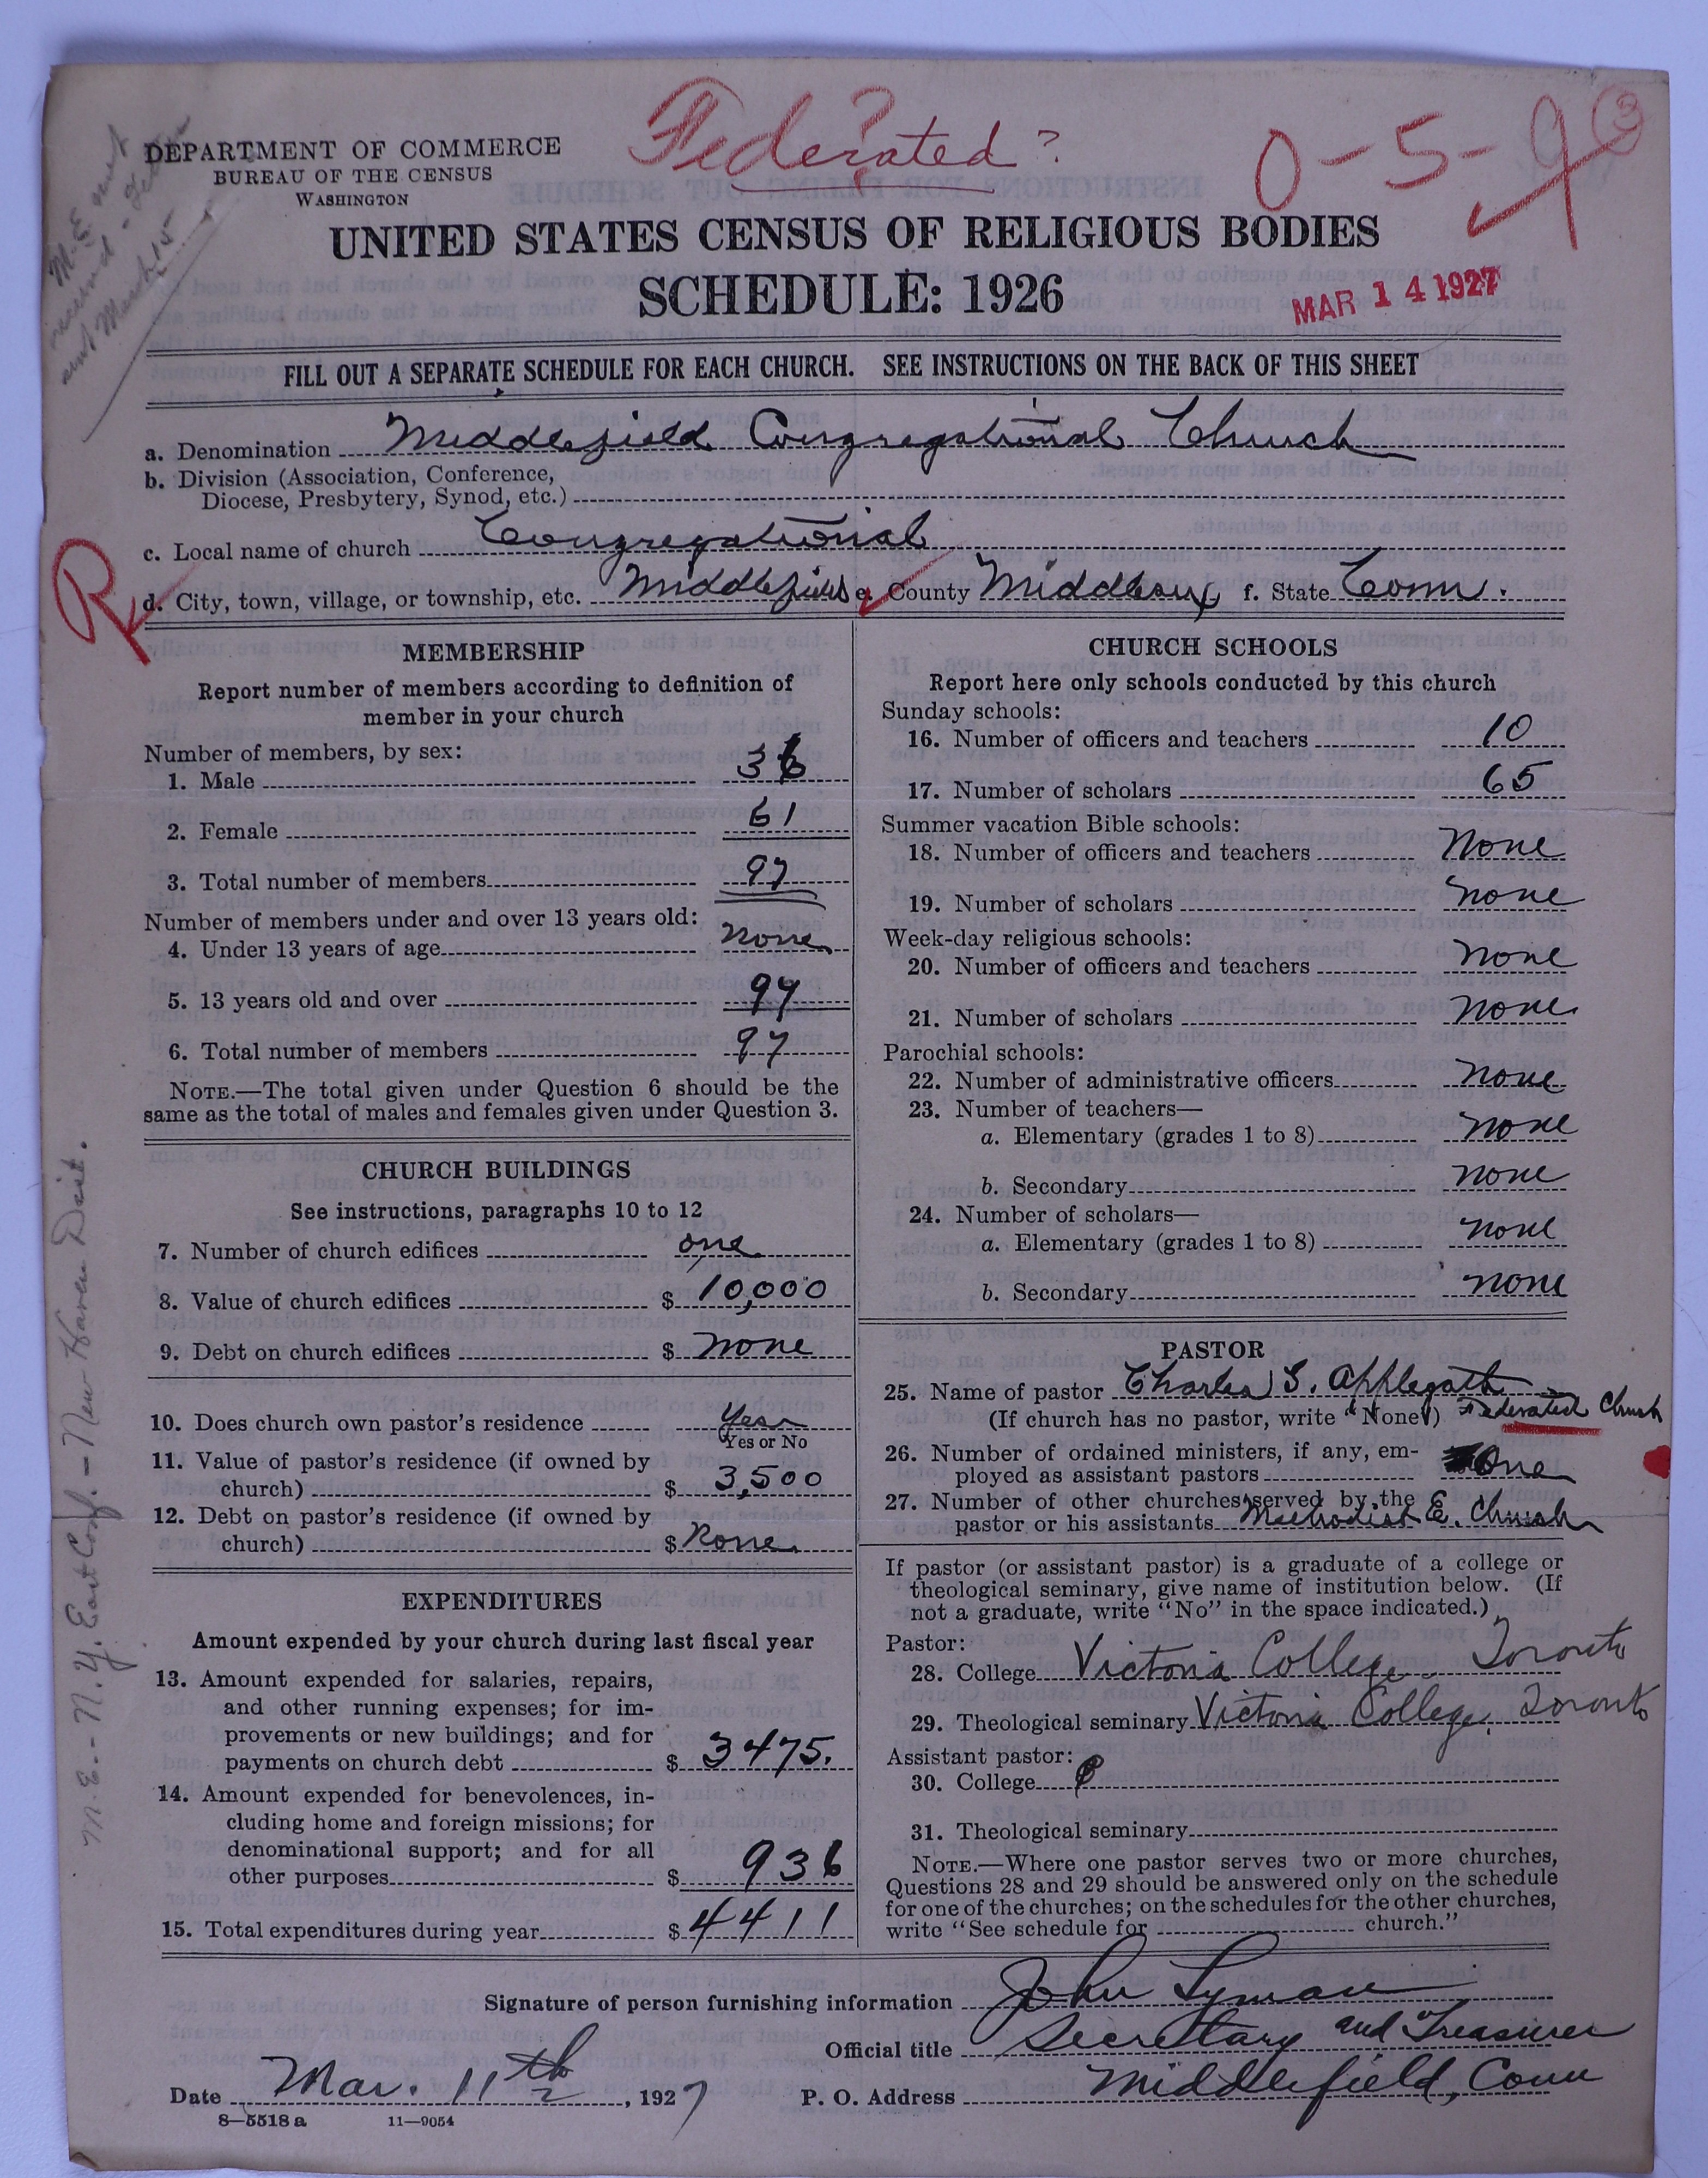 Federated ?
0-5-9
3
DEPARTMENT OF COMMERCE
BUREAU OF THE CENSUS
WASHINGTON
M.E. sent
received -
sent March 15
UNITED STATES CENSUS OF RELIGIOUS BODIES
SCHEDULE: 1926
MAR 14 1927
FILL OUT A SEPARATE SCHEDULE FOR EACH CHURCH. SEE INSTRUCTIONS ON THE BACK OF THIS SHEET
a. Denomination Middlefield Congregational Church
b. Division (Association, Conference,
Diocese, Presbytery, Synod, etc.)
c. Local name of church Congregational
R
d. City, town, village, or township, etc. Middlefield e. County Middlesex f. State Conn.
MEMBERSHIP
Report number of members according to definition of
member in your church
Number of members, by sex:
1. Male 36
2. Female 61
3. Total number of members 97
Number of members under and over 13 years old:
4. Under 13 years of age None
5. 13 years old and over 97
6. Total number of members 97
NOTE.—The total given under Question 6 should be the
same as the total of males and females given under Question 3.
CHURCH BUILDINGS
See instructions, paragraphs 10 to 12
7. Number of church edifices one
8. Value of church edifices $ 10,000
9. Debt on church edifices $ None
10. Does church own pastor's residence Yes
Yes or No
11. Value of pastor's residence (if owned by
church) $ 3,500
12. Debt on pastor's residence (if owned by
church) $ None
EXPENDITURES
Amount expended by your church during last fiscal year
13. Amount expended for salaries, repairs,
and other running expenses; for im-
provements or new buildings; and for
payments on church debt $ 3475.
14. Amount expended for benevolences, in-
cluding home and foreign missions; for
denominational support; and for all
other purposes $ 936
15. Total expenditures during year $ 4411
M.E. - N.Y. East Conf. - New Haven Dist.
CHURCH SCHOOLS
Report here only schools conducted by this church
Sunday schools:
16. Number of officers and teachers 10
17. Number of scholars 65
Summer vacation Bible schools:
18. Number of officers and teachers None
19. Number of scholars None
Week-day religious schools:
20. Number of officers and teachers None
21. Number of scholars None.
Parochial schools:
22. Number of administrative officers None
23. Number of teachers—
a. Elementary (grades 1 to 8) None
b. Secondary None
24. Number of scholars—
a. Elementary (grades 1 to 8) None
b. Secondary None
PASTOR
25. Name of pastor Charles S. Applegath
(If church has no pastor, write "None") Federated Church
26. Number of ordained ministers, if any, em-
ployed as assistant pastors One
27. Number of other churches served by the
pastor or his assistants Methodist E. Church
If pastor (or assistant pastor) is a graduate of a college or
theological seminary, give name of institution below. (If
not a graduate, write "No" in the space indicated.)
Pastor:
28. College Victoria College Toronto
29. Theological seminary Victoria College, Toronto
Assistant pastor:
30. College
31. Theological seminary
NOTE.—Where one pastor serves two or more churches,
Questions 28 and 29 should be answered only on the schedule
for one of the churches; on the schedules for the other churches,
write "See schedule for church."
Signature of person furnishing information John Lyman
Official title Secretary and Treasurer
Date Mar. 11th, 1927 P. O. Address Middlefield, Conn
8—5518 a 11—9054